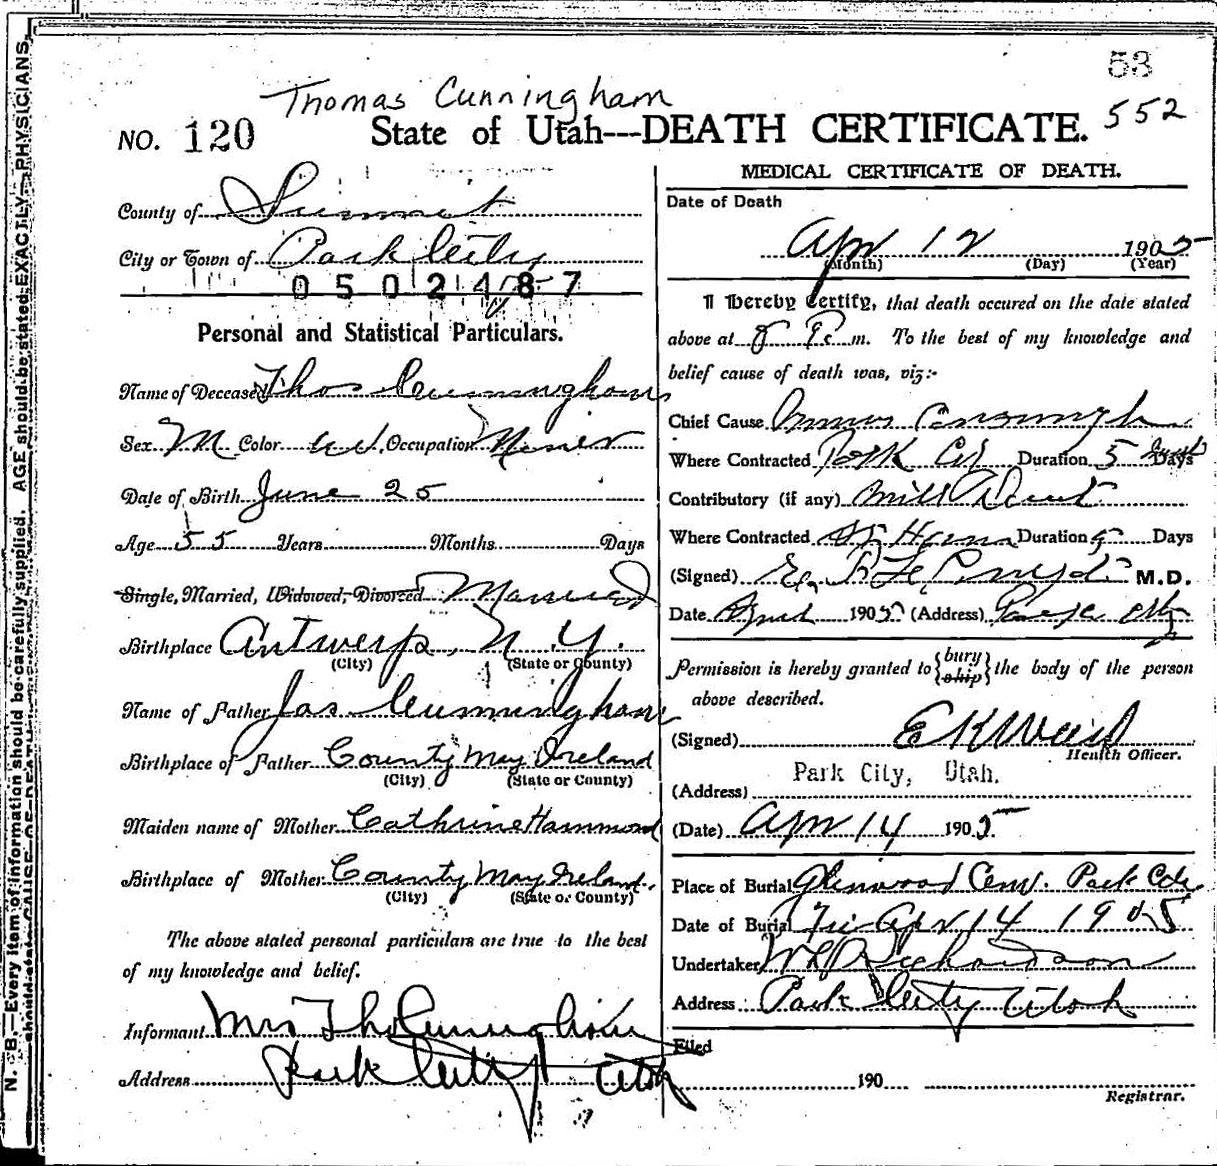 53
Thomas Cunningham
552
NO. 120 State of Utah---DEATH CERTIFICATE.
County of Summit
City or Town of Park City
0502487
Personal and Statistical Particulars.
Name of Deceased Thos Cunningham
Sex M Color W. Occupation Miner
Date of Birth June 25
Age 55 Years Months Days
Single, Married, Widowed, Divorced Married
Birthplace Antwerp, N.Y.
(City) (State or County)
Name of Father Jas Cunningham
Birthplace of Father County May Ireland
(City) (State or County)
Maiden name of Mother Cathrine Hammond
Birthplace of Mother County May Ireland.
(City) (State or County)
The above stated personal particulars are true to the best
of my knowledge and belief.
Informant Mrs Tho Cunningham
Address Park City Utah
MEDICAL CERTIFICATE OF DEATH.
Date of Death
Apr 12 1905
(Month) (Day) (Year)
I Hereby Certify, that death occured on the date stated
above at 8 P. m. To the best of my knowledge and
belief cause of death was, viz:-
Chief Cause
Where Contracted Park City Duration 5 Days
Contributory (if any) Mill
Where Contracted Duration Days
(Signed) M.D.
Date April 1905 (Address) Park City
Permission is hereby granted to {bury ship} the body of the person
above described.
(Signed)
Health Officer.
Park City, Utah.
(Address)
(Date) Apr 14 1905
Place of Burial Glenwood Cem. Park City
Date of Burial Fri Apr 14 1905
Undertaker W Richardson
Address Park City Utah
Filed
190
Registrar.
N. B.—Every item of information should be carefully supplied. AGE should be stated EXACTLY. PHYSICIANS
should state CAUSE OF DEATH